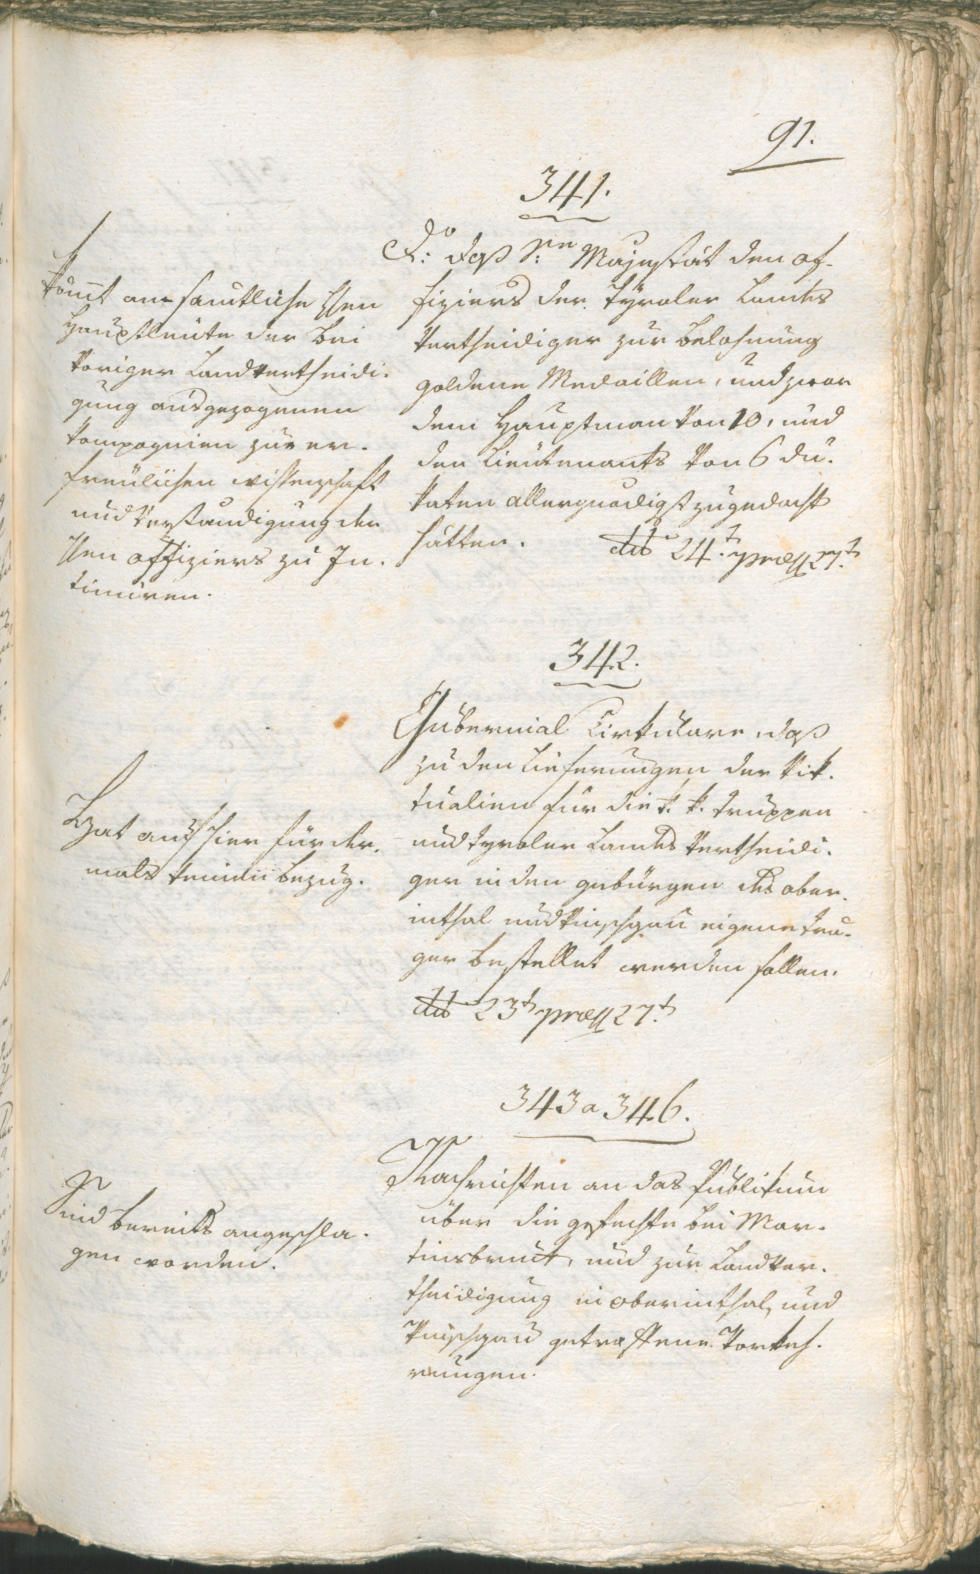 91.
341.
d:o daß S:ne Majestät den of-
fiziers der Tyroler Landes
Vertheidiger zur Belohnung
goldene Medaillen, und zwar
dem Hauptman von 10, und
den Lieutenants von 6 Du-
katen allergnädigst zugedacht
hätten. dto 24.t præs 27.t
Kommt an samtliche Hren
Hauptleute der bei
voriger Landvertheidi-
gung ausgezogenen
Kompagnien zur er-
freulichen wissenschaft
und Verständigung der
Hren offiziers zu In-
timiren.
342.
Gubernial Cirkulare, daß
zu den Lieferungen der Vik-
tualien für die k. k. Truppen
und Tyroler Landes Vertheidi-
ger in den gebürgen des ober-
inthal und Vinschgau eigene Trä-
ger bestellet werden sollen.
dto 23t præs 27.t
Hat auf hier für der-
mals keinen bezug.
343 a 346.
Nachrichten an das Publikum
über die gefechte bei Mar-
tinsbruck, und zur Landver-
theidigung in oberinthal, und
Vinschgau getroffene Vorkeh-
rungen.
Sind bereits angeschla-
gen worden.